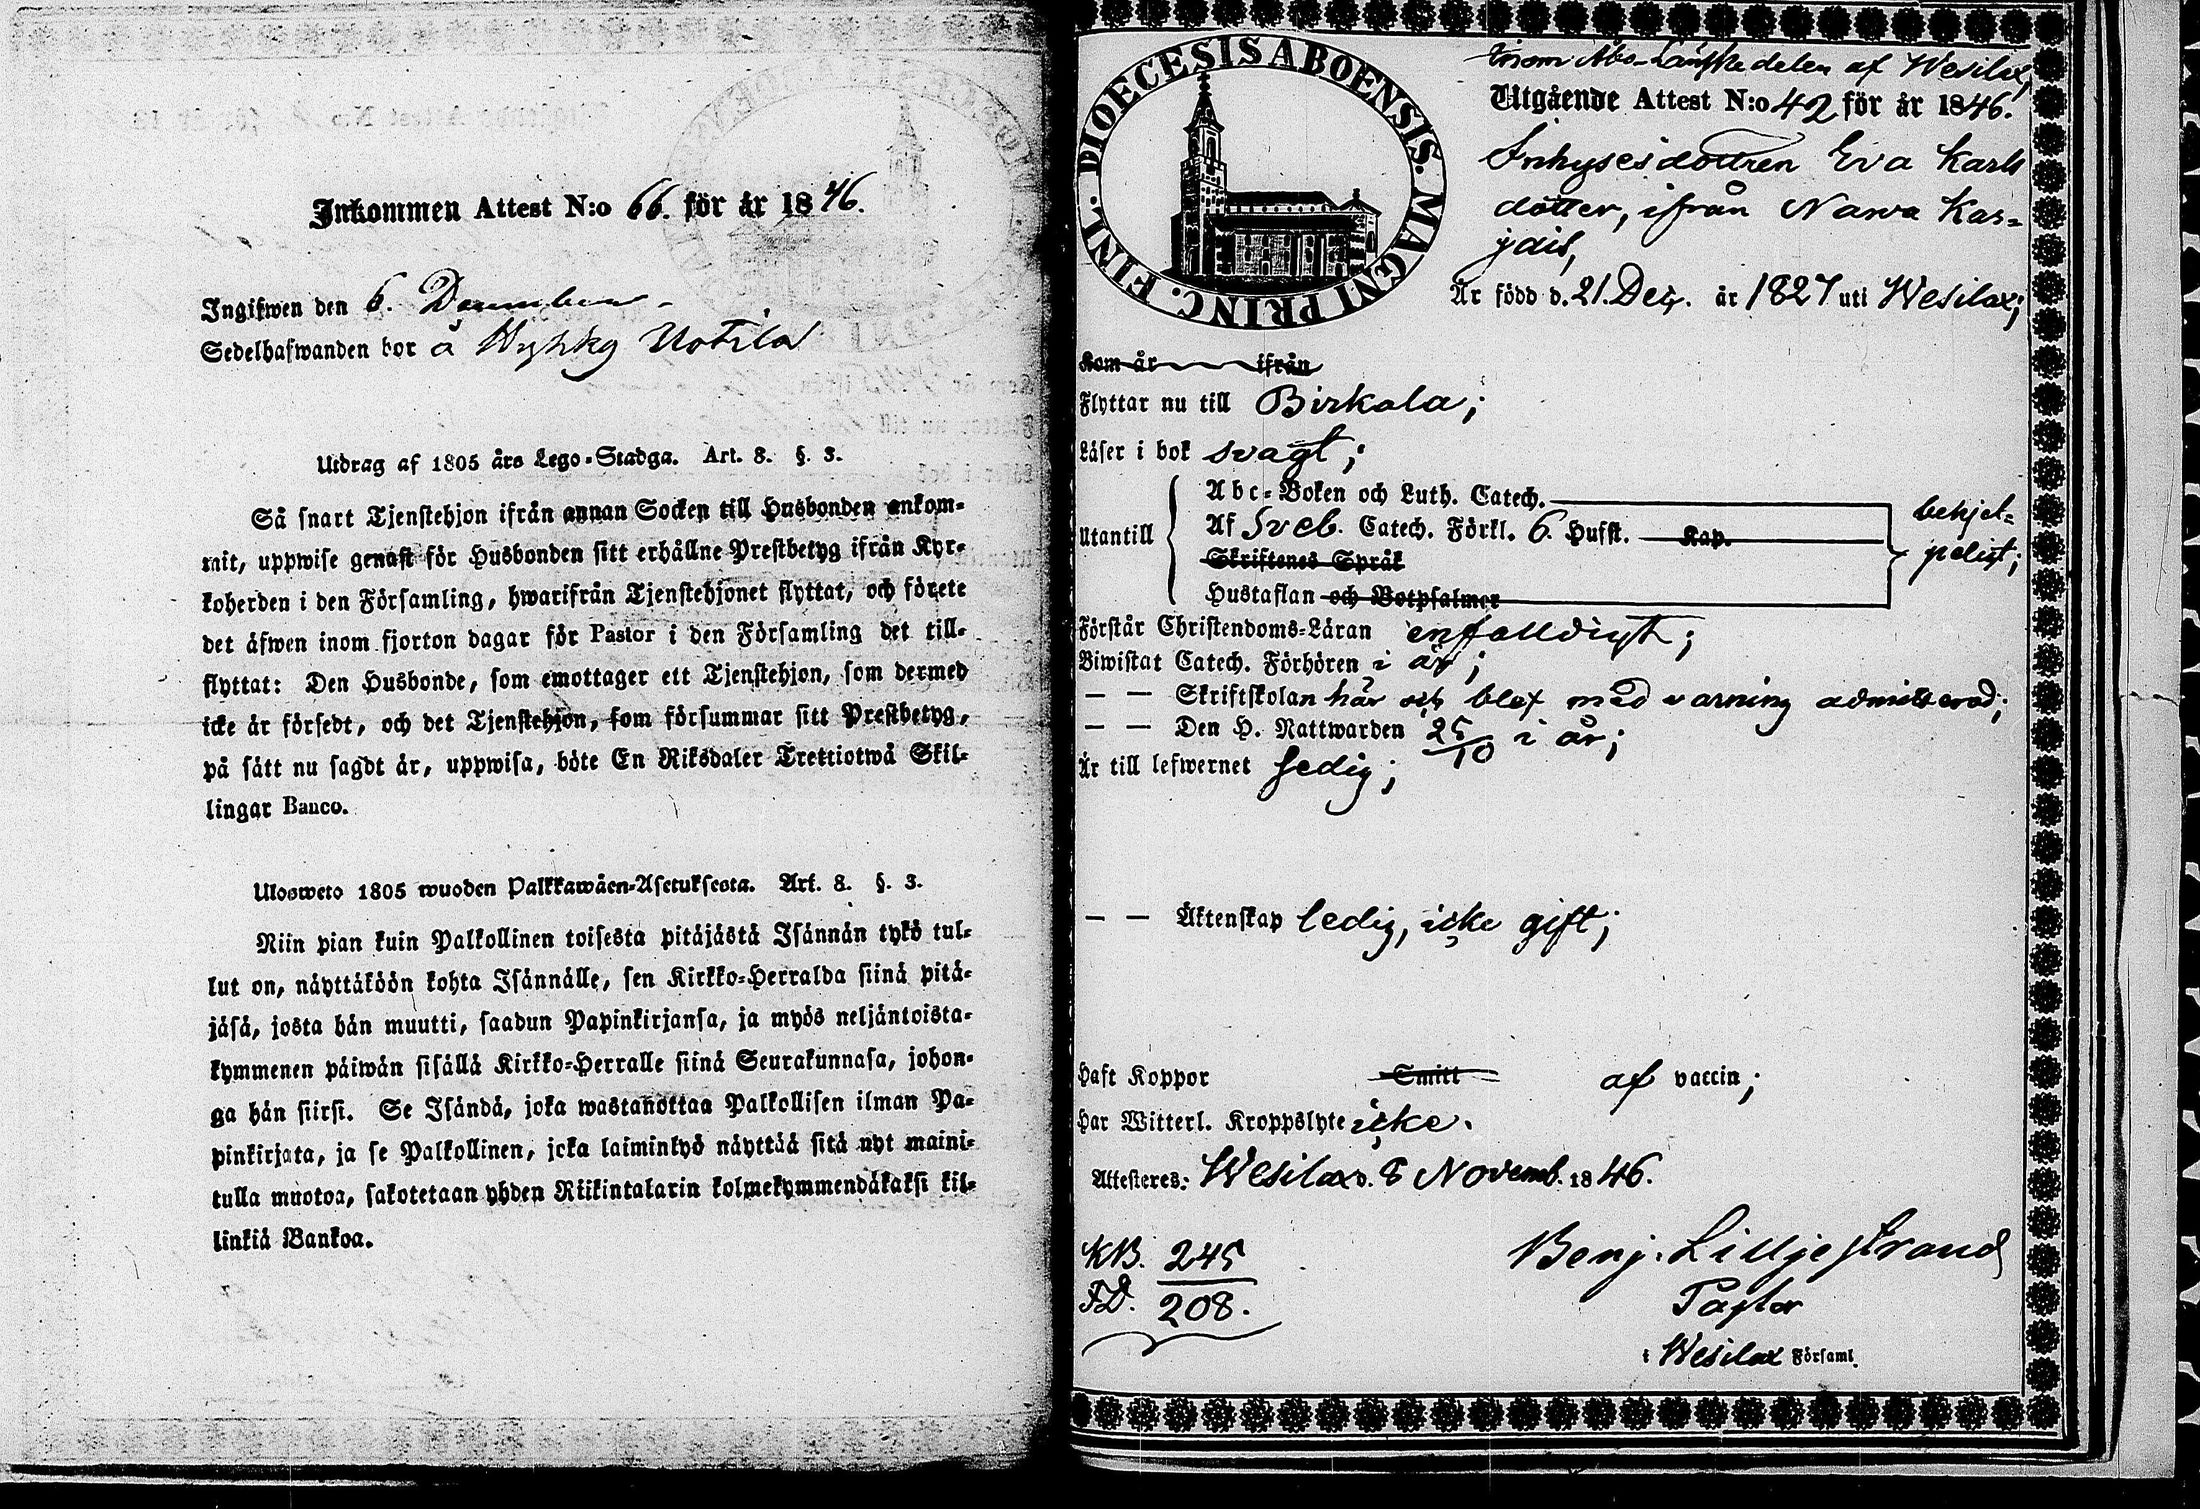 Inkommen Attest N:o 66. för år 1846.
Ingifwen den 6. December
Sedelhafwanden bor å Wyhky Uotila
Utdrag af 1805 års Lego-Stadga. Art. 8. §. 3.
Så snart Tjenstehjon ifrån annan Socken till Husbonden ankom-
mit, uppwise genast för Husbonden sitt erhållne Prestbetyg ifrån Kyr-
koherden i den Församling, hwarifrån Tjenstehjonet flyttat, och förete
det äfwen inom fjorton dagar för Pastor i den Församling det till-
flyttat: Den Husbonde, som emottager ett Tjenstehjon, som dermed
icke är försedt, och det Tjenstehjon, som försummar sitt Prestbetyg,
på sätt nu sagdt är, uppwisa, böte En Riksdaler Trettiotwå Skil-
lingar Banco.
Ulosweto 1805 wuoden Palkkawäen-Asetuksesta. Art. 8. §. 3.
Niin pian kuin Palkollinen toisesta pitäjästä Isännän tykö tul-
lut on, näyttäköön kohta Isännälle, sen Kirkko-Herralda siinä pitä-
jäsä, josta hän muutti, saadun Papinkirjansa, ja myös neljäntoista-
kymmenen päiwän sisällä Kirkko-Herralle siinä Seurakunnasa, johon-
ga hän siirsi. Se Isändä, joka wastanottaa Palkollisen ilman Pa-
pinkirjata, ja se Palkollinen, joka laiminlyö näyttää sitä nyt maini-
tulla muotoa, sakotetaan yhden Riikintalarin kolmekymmendäkaksi kil-
linkiä Bankoa.
DIOECESIS ABOENSIS. MAGNI PRINC. FINL.
inom Åbo-Länske delen af Wesilax,
Utgående Attest N:o 42 för år 1846.
Inhysesdottren Eva Karls
dotter, ifrån Narva Kas-
jais,
Är född d. 21. Dec. år 1827 uti Wesilax;
Kom år ifrån
Flyttar nu till Birkala;
Läser i bok svagt;
Utantill
Abc-Boken och Luth. Catech.
Af Sveb. Catech. Förkl. 6. Hufst. Kap.
Skriftenes Språk
Hustaflan och Botpsalmer
behjel-
peligt;
Förstår Christendoms-Läran enfalldigt;
Biwistat Catech. Förhören i år;
— — Skriftskolan här och blef med varning admitterad;
— — Den H. Nattwarden 25/10 i år;
Är till lefwernet sedig;
— — Äktenskap ledig, icke gift;
Haft Koppor Smitt af vaccin;
Har Witterl. Kroppslyte icke.
Attesteres: Wesilax d. 8 Novemb. 1846.
KB. 245
FD. 208.
Benj. Lilljestrand
Pastor
i Wesilax Församl.